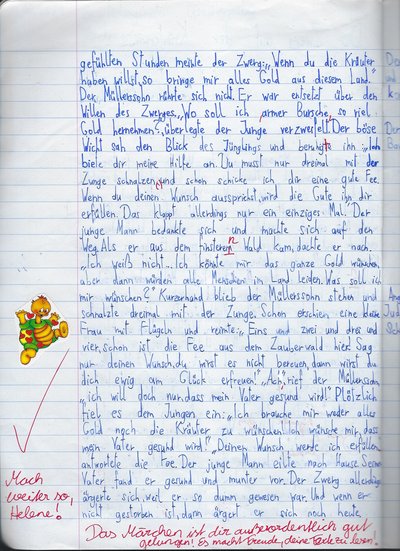 gefühlten Stunden meinte der Zwerg: „Wenn du die Kräuter
haben willst, so bringe mir alles Gold aus diesem Land."
Der Müllerssohn rührte sich nicht. Er war entsetzt über den
Willen des Zwerges. „Wo soll ich armer Bursche so viel
Gold hernehmen?", überlegte der Junge verzweifelt. Der böse
Wicht sah den Blick des Jünglings und beruhigte ihn: „Ich
biete dir meine Hilfe an. Du musst nur dreimal mit der
Zunge schnalzen, und schon schicke ich dir eine gute Fee.
Wenn du deinen Wunsch aussprichst, wird die Gute ihn dir
erfüllen. Das klappt allerdings nur ein einziges Mal." Der
junge Mann bedankte sich und machte sich auf den
Weg. Als er aus dem finsteren Wald kam, dachte er nach.
„Ich weiß nicht... Ich könnte mir das ganze Gold wünschen,
aber dann würden alle Menschen im Land leiden. Was soll ich
mir wünschen?" Kurzerhand blieb der Müllerssohn stehen und
schnalzte dreimal mit der Zunge. Schon erschien eine kleine
Frau mit Flügeln und reimte: „Eins und zwei und drei und
vier, schon ist die Fee aus dem Zauberwald hier. Sag
nur deinen Wunsch, du wirst es nicht bereuen, dann wirst du
dich ewig am Glück erfreuen!" „Ach", rief der Müllerssohn,
„ich will doch nur, dass mein Vater gesund wird!" Plötzlich
fiel es dem Jungen ein: „Ich brauche mir weder alles
Gold noch die Kräuter zu wünschen! Ich wünsche mir, dass
mein Vater gesund wird!" „Deinen Wunsch werde ich erfüllen",
antwortete die Fee. Der junge Mann eilte nach Hause. Seinen
Vater fand er gesund und munter vor. Der Zwerg allerdings
ärgerte sich, weil er so dumm gewesen war. Und wenn er
nicht gestorben ist, dann ärgert er sich noch heute.
Mach
weiter so,
Helene!
Das Märchen ist dir außerordentlich gut
gelungen! Es macht Freude, deine Texte zu lesen.